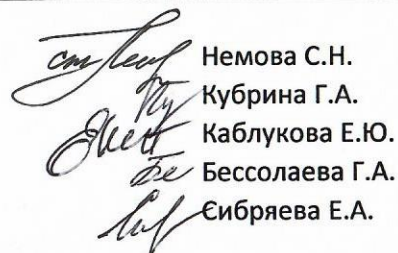 Немова С.Н.
Кубрина Г.А.
Каблукова Е.Ю.
Бессолаева Г.А.
Сибряева Е.А.